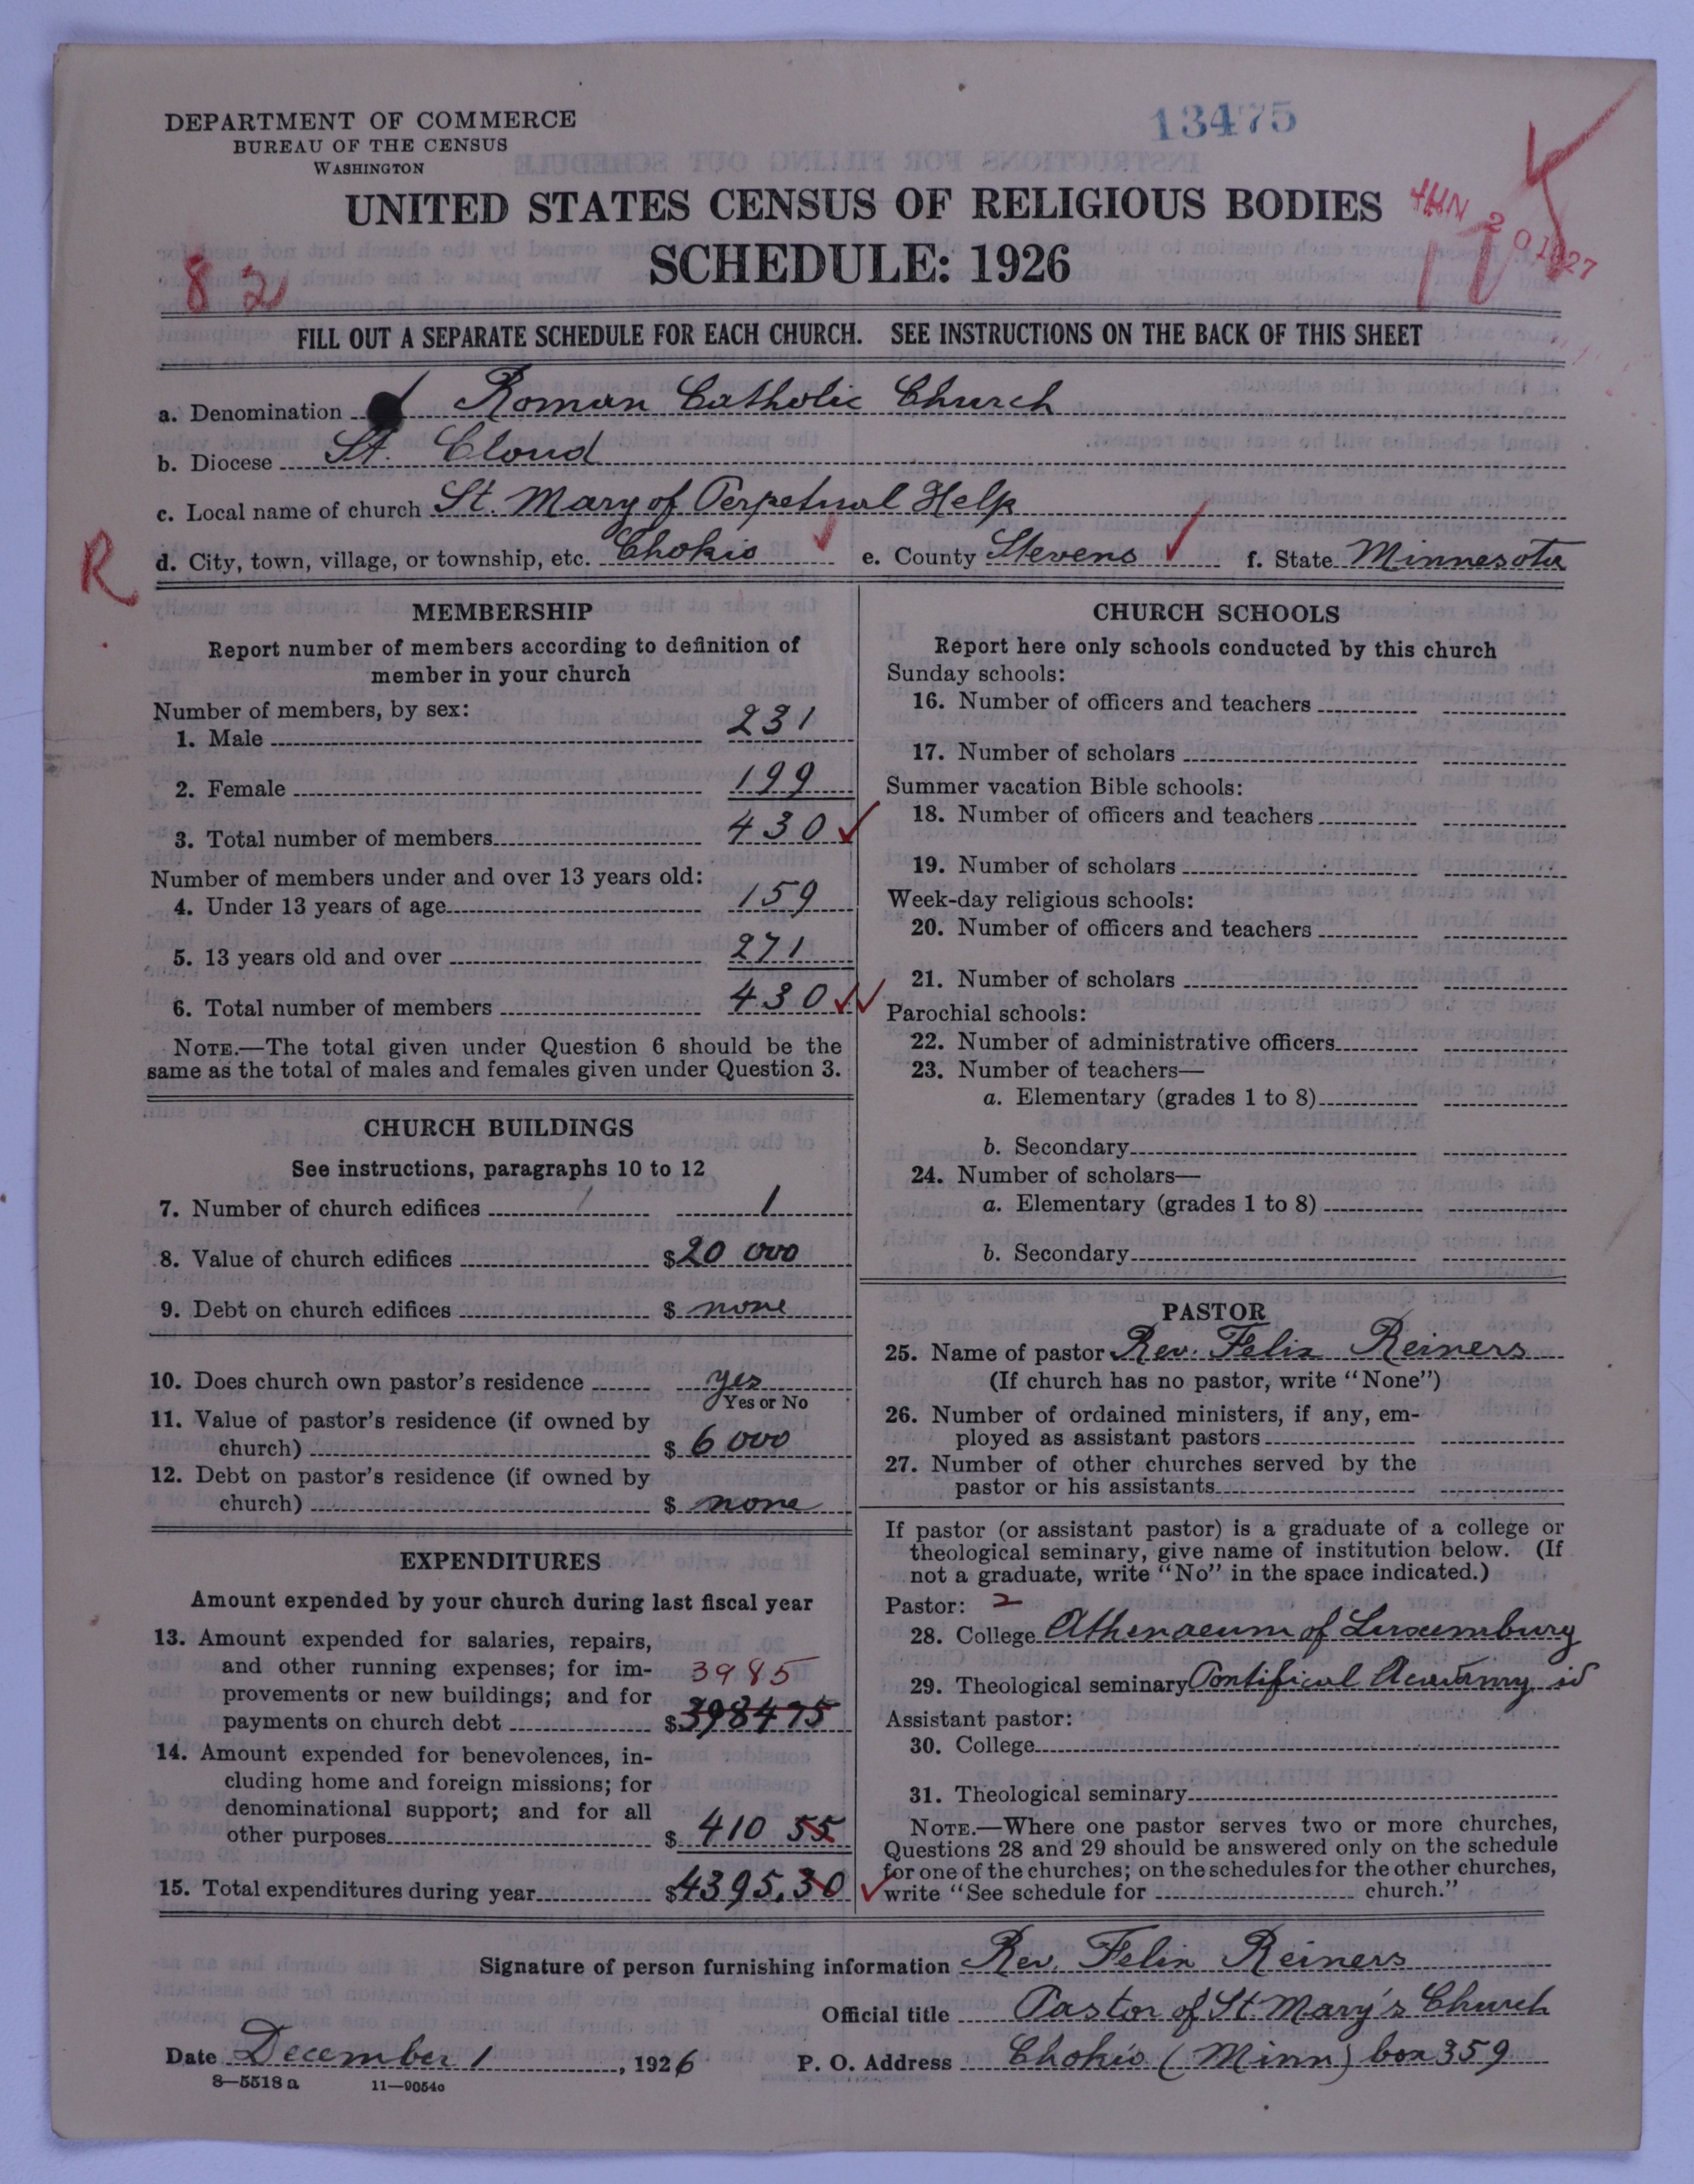 DEPARTMENT OF COMMERCE
BUREAU OF THE CENSUS
WASHINGTON
13475
UNITED STATES CENSUS OF RELIGIOUS BODIES
SCHEDULE: 1926
JAN 20 1927
82
FILL OUT A SEPARATE SCHEDULE FOR EACH CHURCH. SEE INSTRUCTIONS ON THE BACK OF THIS SHEET
a. Denomination Roman Catholic Church
b. Diocese St. Cloud
c. Local name of church St. Mary of Perpetual Help
R
d. City, town, village, or township, etc. Chokio e. County Stevens f. State Minnesota
MEMBERSHIP
Report number of members according to definition of
member in your church
Number of members, by sex:
1. Male 231
2. Female 199
3. Total number of members 430
Number of members under and over 13 years old:
4. Under 13 years of age 159
5. 13 years old and over 271
6. Total number of members 430
NOTE.—The total given under Question 6 should be the
same as the total of males and females given under Question 3.
CHURCH BUILDINGS
See instructions, paragraphs 10 to 12
7. Number of church edifices 1
8. Value of church edifices $20 000
9. Debt on church edifices $ none
10. Does church own pastor's residence yes
Yes or No
11. Value of pastor's residence (if owned by
church) $ 6 000
12. Debt on pastor's residence (if owned by
church) $ none
EXPENDITURES
Amount expended by your church during last fiscal year
13. Amount expended for salaries, repairs,
and other running expenses; for im- 3985
provements or new buildings; and for
payments on church debt $3984 75
14. Amount expended for benevolences, in-
cluding home and foreign missions; for
denominational support; and for all
other purposes $ 410 55
15. Total expenditures during year $4395.30
CHURCH SCHOOLS
Report here only schools conducted by this church
Sunday schools:
16. Number of officers and teachers
17. Number of scholars
Summer vacation Bible schools:
18. Number of officers and teachers
19. Number of scholars
Week-day religious schools:
20. Number of officers and teachers
21. Number of scholars
Parochial schools:
22. Number of administrative officers
23. Number of teachers—
a. Elementary (grades 1 to 8)
b. Secondary
24. Number of scholars—
a. Elementary (grades 1 to 8)
b. Secondary
PASTOR
25. Name of pastor Rev. Felix Reiners
(If church has no pastor, write "None")
26. Number of ordained ministers, if any, em-
ployed as assistant pastors
27. Number of other churches served by the
pastor or his assistants
If pastor (or assistant pastor) is a graduate of a college or
theological seminary, give name of institution below. (If
not a graduate, write "No" in the space indicated.)
Pastor: 2
28. College Athenaeum of Luxemburg
29. Theological seminary Pontifical Academy
Assistant pastor:
30. College
31. Theological seminary
NOTE.—Where one pastor serves two or more churches,
Questions 28 and 29 should be answered only on the schedule
for one of the churches; on the schedules for the other churches,
write "See schedule for church."
Signature of person furnishing information Rev. Felix Reiners
Official title Pastor of St Mary's Church
Date December 1, 1926 P. O. Address Chokio (Minn) box 359
8—5518 a 11—9054o